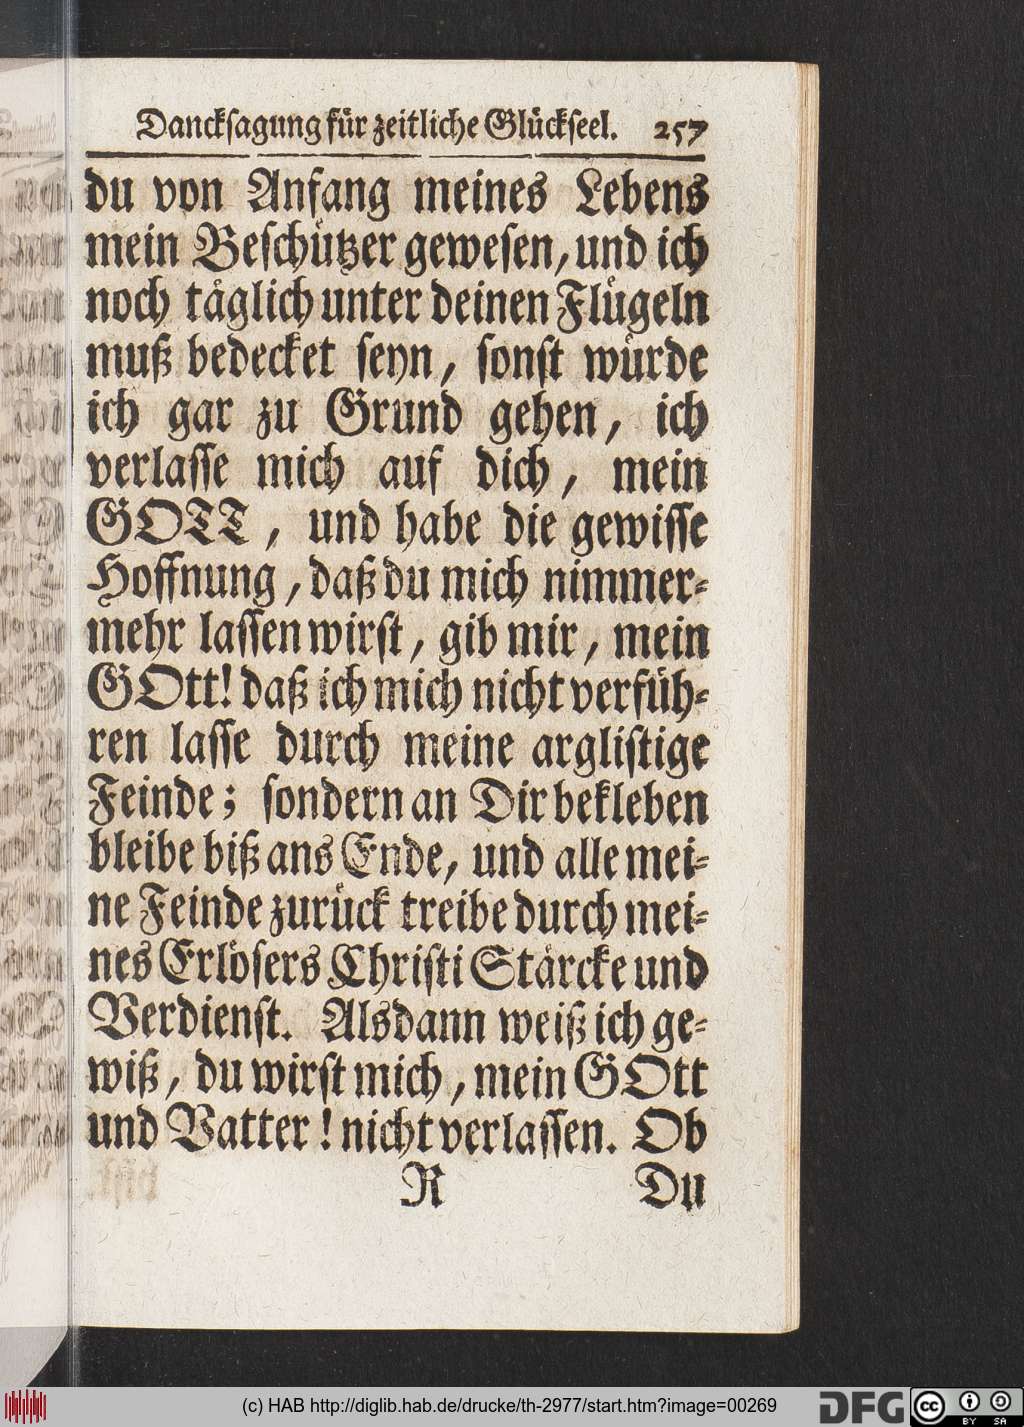 Dancksagung für zeitliche Glückseel. 257
du von Anfang meines Lebens
mein Beschützer gewesen, und ich
noch täglich unter deinen Flügeln
muß bedecket seyn, sonst würde
ich gar zu Grund gehen, ich
verlasse mich auf dich, mein
GOTT, und habe die gewisse
Hoffnung, daß du mich nimmer-
mehr lassen wirst, gib mir, mein
GOtt! daß ich mich nicht verfüh-
ren lasse durch meine arglistige
Feinde; sondern an Dir bekleben
bleibe biß ans Ende, und alle mei-
ne Feinde zurück treibe durch mei-
nes Erlösers Christi Stärcke und
Verdienst. Alsdann weiß ich ge-
wiß, du wirst mich, mein GOtt
und Vatter! nicht verlassen. Ob
R Du
(c) HAB http://diglib.hab.de/drucke/th-2977/start.htm?image=00269
DFG cc BY SA